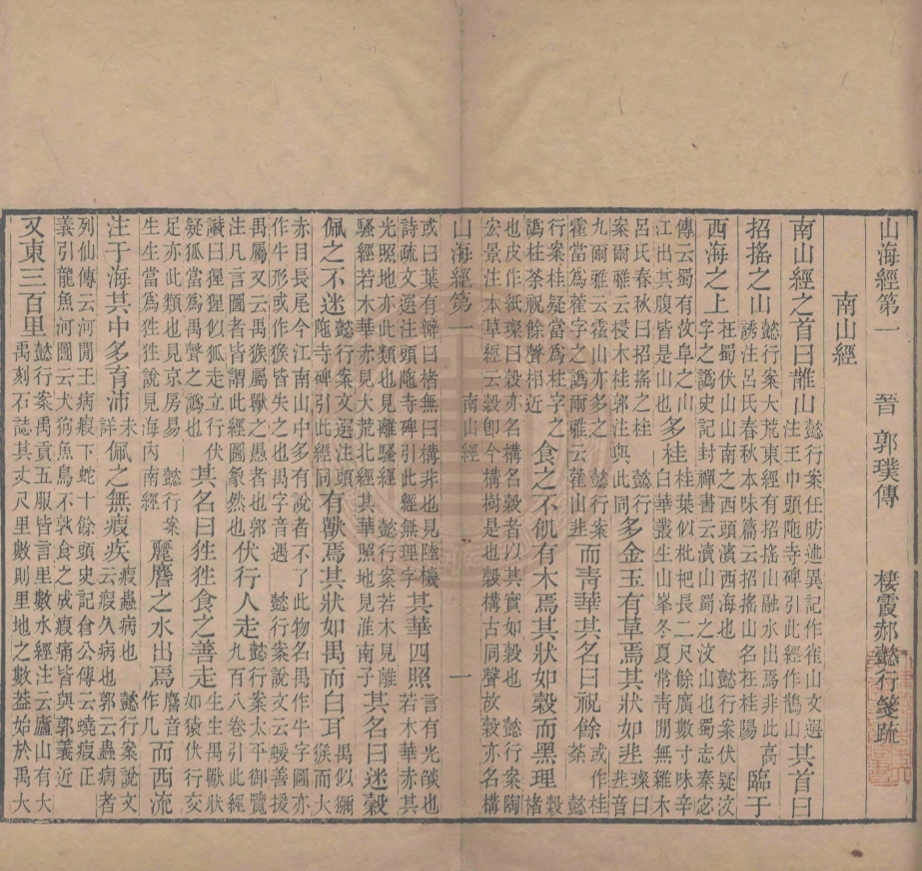 山海經第一　晉　郭璞傳　棲霞郝懿行箋疏
南山經
南山經之首曰䧿山懿行案任昉述異記作雀山文選注王巾頭陁寺碑引此經作鵲山其首曰
招搖之山懿行案大荒東經有招搖山融水出焉非此高誘注呂氏春秋本味篇云招搖山名在桂陽臨于
西海之上在蜀伏山山南之西頭濱西海也　懿行案伏疑汶字之譌史記封禪書云瀆山蜀之汶山也蜀志秦宓
傳云蜀有汶阜之山江出其腹皆是山也多桂桂葉似枇杷長二尺餘廣數寸味辛白華叢生山峯冬夏常靑閒無雜木
呂氏春秋曰招搖之桂　懿行案爾雅云梫木桂郭注與此同多金玉有草焉其狀如韭璨曰韭音
九爾雅云霍山亦多之　懿行案霍當爲藿字之譌爾雅云藿山韭而靑華其名曰祝餘或作桂荼　懿
行案桂疑當爲柱字之譌柱荼祝餘聲相近食之不飢有木焉其狀如榖而黑理榖楮
也皮作紙璨曰榖亦名構名榖者以其實如榖也　懿行案陶宏景注本草經云榖卽今構樹是也榖構古同聲故榖亦名構
山海經第一　南山經　一
或曰葉有瓣曰楮無曰構非也見陸機詩疏文選注頭陁寺碑引此經無理字其華四照言有光燄也若木華赤其
光照地亦此類也見離騷經　懿行案若木見離騷經若木華赤見大荒北經其華照地見淮南子其名曰迷榖
佩之不迷懿行案文選注頭陁寺碑引此經同有獸焉其狀如禺而白耳禺似獼猴而大
赤目長尾今江南山中多有說者不了此物名禺作牛字圖亦作牛形或作猴皆失之也禺字音遇　懿行案說文云蝯善援
禺屬又云禺猴屬獸之愚者也郭注凡言圖者皆謂此經圖象然也伏行人走懿行案太平御覽九百八卷引此經
讖曰猩猩似狐走立行伏疑狐當爲禺聲之譌也其名曰狌狌食之善走生生禺獸狀如猿伏行交
足亦此類也見京房易　懿行案生生當爲狌狌說見海內南經麗𪊨之水出焉𪊨音作几而西流
注于海其中多育沛未詳佩之無瘕疾瘕蟲病也　懿行案說文云瘕久病也郭云蟲病者
列仙傳云河閒王病瘕下蛇十餘頭史記倉公傳云蟯瘕正義引龍魚河圖云犬狗魚鳥不孰食之成瘕痛皆與郭義近
又東三百里懿行案禹貢五服皆言里數水經注云廬山有大禹刻石誌其丈尺里數則里地之數葢始於禹大